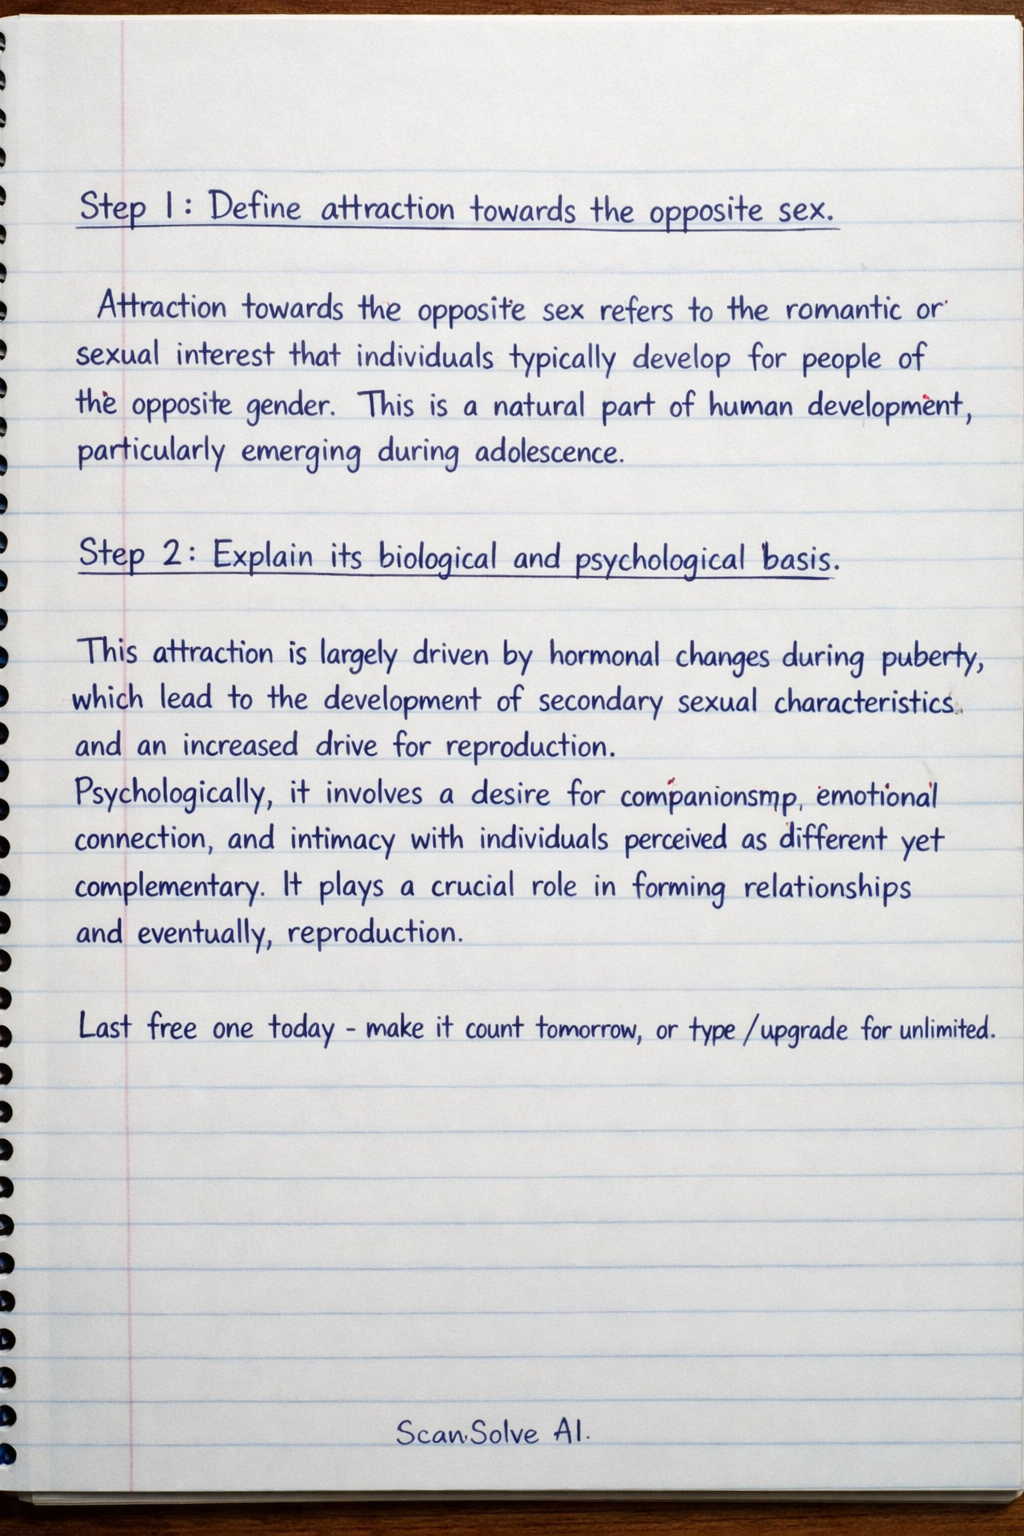 Step 1: Define attraction towards the opposite sex.
Attraction towards the opposite sex refers to the romantic or
sexual interest that individuals typically develop for people of
the opposite gender. This is a natural part of human development,
particularly emerging during adolescence.
Step 2: Explain its biological and psychological basis.
This attraction is largely driven by hormonal changes during puberty,
which lead to the development of secondary sexual characteristics.
and an increased drive for reproduction.
Psychologically, it involves a desire for companionsmp, emotional
connection, and intimacy with individuals perceived as different yet
complementary. It plays a crucial role in forming relationships
and eventually, reproduction.
Last free one today - make it count tomorrow, or type /upgrade for unlimited.
Scan.Solve AI.